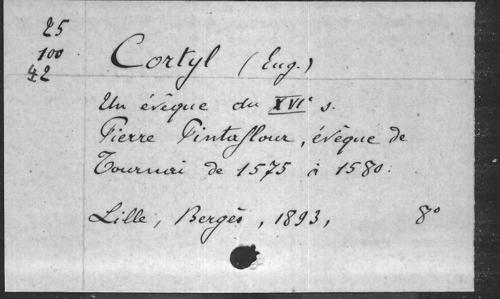 25
100
42
Cortyl (Eug.)
Un évêque du XVIe s.
Pierre Pintaflour, évêque de
Tournai de 1575 à 1580.
Lille, Bergès, 1893, 8o